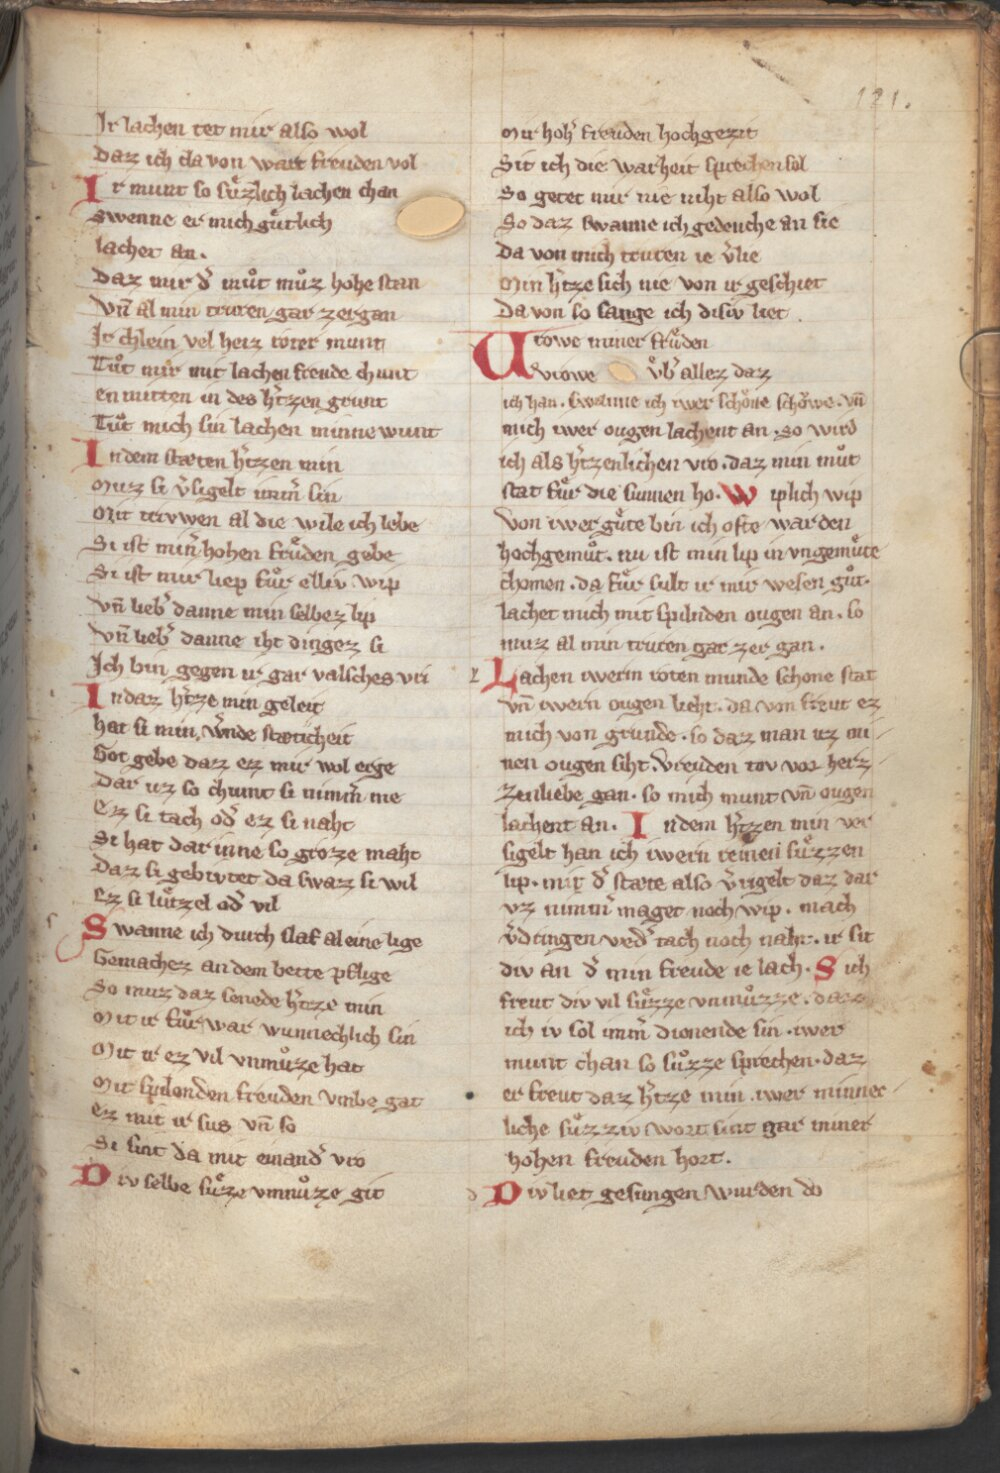 121.
Ir lachen tet mir also wol
Daz ich da von wart freuden vol
Ir munt so suͤzlich lachen chan
Swenne er mich guͤtlich
lachet an.
Daz mir d̾ muͦt muͦz hohe stan
Vn̄ al min truren gar zergan
Ir chlein vel heiz roter munt
Tuͦt mir mit lachen freude chunt
en mitten in des h̾tzen grunt
Tuͦt mich sin lachen minne wunt
In dem stæten h̾tzen min
Muz si v̾sigelt imm̾ sin
Mit triwen al die wile ich lebe
Si ist min̾ hohen freuͤden gebe
Si ist mir liep fuͤr elliv wip
Vn̄ lieb̾ danne min selbez lip
Vn̄ lieb̾ danne iht dinges si
Ich bin gegen ir gar valsches vri
In daz h̾tze min geleit
hat si min, v̾nde stæticheit
Got gebe daz ez mir wol erge
Dar uz so chunt si nimm̾ me
Ez si tach od̾ ez si naht
Si hat dar inne so groze maht
Daz si gebivtet da swaz si wil
Ez si luͤtzel od̾ vil
Swanne ich durch slaf al eine lige
Gemaches an dem bette pflige
So muz daz senede h̾tze min
Mit ir fuͤr war wunnechlich sin
Mit ir ez vil vnmuͤze hat
Mit spilonden freuden vmbe gat
Ez mit ir sus vn̄ so
Si sint da mit einand̾ vro
Div selbe suͤze vnmuͦze git
Mir hoh̾ freuden hochgezit
Sit ich die warheit sprechen sol
So getet mir nie niht also wol
So daz swanne ich gedenche an sie
Da von mich truren ie v̾lie
Min h̾tze sich nie von ir geschiet
Da von so sange ich disiv liet.
Vrowe miner freuͤden
vrowe uͤb̾ allez daz
ich han. Swanne ich iwer schoͤne schowe. vn̄
mich iwer ougen lachent an. so wird
ich als h̾tzenlichen vro. daz min muͦt
stat fuͤr die sunnen ho. Wiplich wip
Von iwer guͤte bin ich ofte warden
hochgemuͦt. nu ist min lip in vngemuͤte
chomen. da fuͤr sult ir mir wesen guͦt.
lachet mich mit spilnden ougen an. so
muz al min truren gar zer gan.
Lachen iwerm roten munde schone stat
vn̄ iwern ougen licht. da von freut ez
mich von grunde. so daz man uz mi-
nen ougen siht. Vreuden tov von herz-
zenliebe gan. so mich munt vn̄ ougen
lachent an. In dem h̾tzen min ver
sigelt han ich iwern reinen suͤzzen
lip. mir d̾ stæte also v̾rigelt daz dar
vz nimm̾ maget noch wip. mach
v̾dringen wed̾ tach noch naht. ir sit
div an d̾ min freude ie lach. Sich
freut div vil suͤzze vnmuͦzze. daz
ich iv sol imm̾ dionende sin. iwer
munt chan so suͤzze sprechen. daz
er freut daz h̾tze min. iwer minnec-
liche suͤzziv wort sint gar miner
hohen freuden hort.
Div liet gesungen wurden do